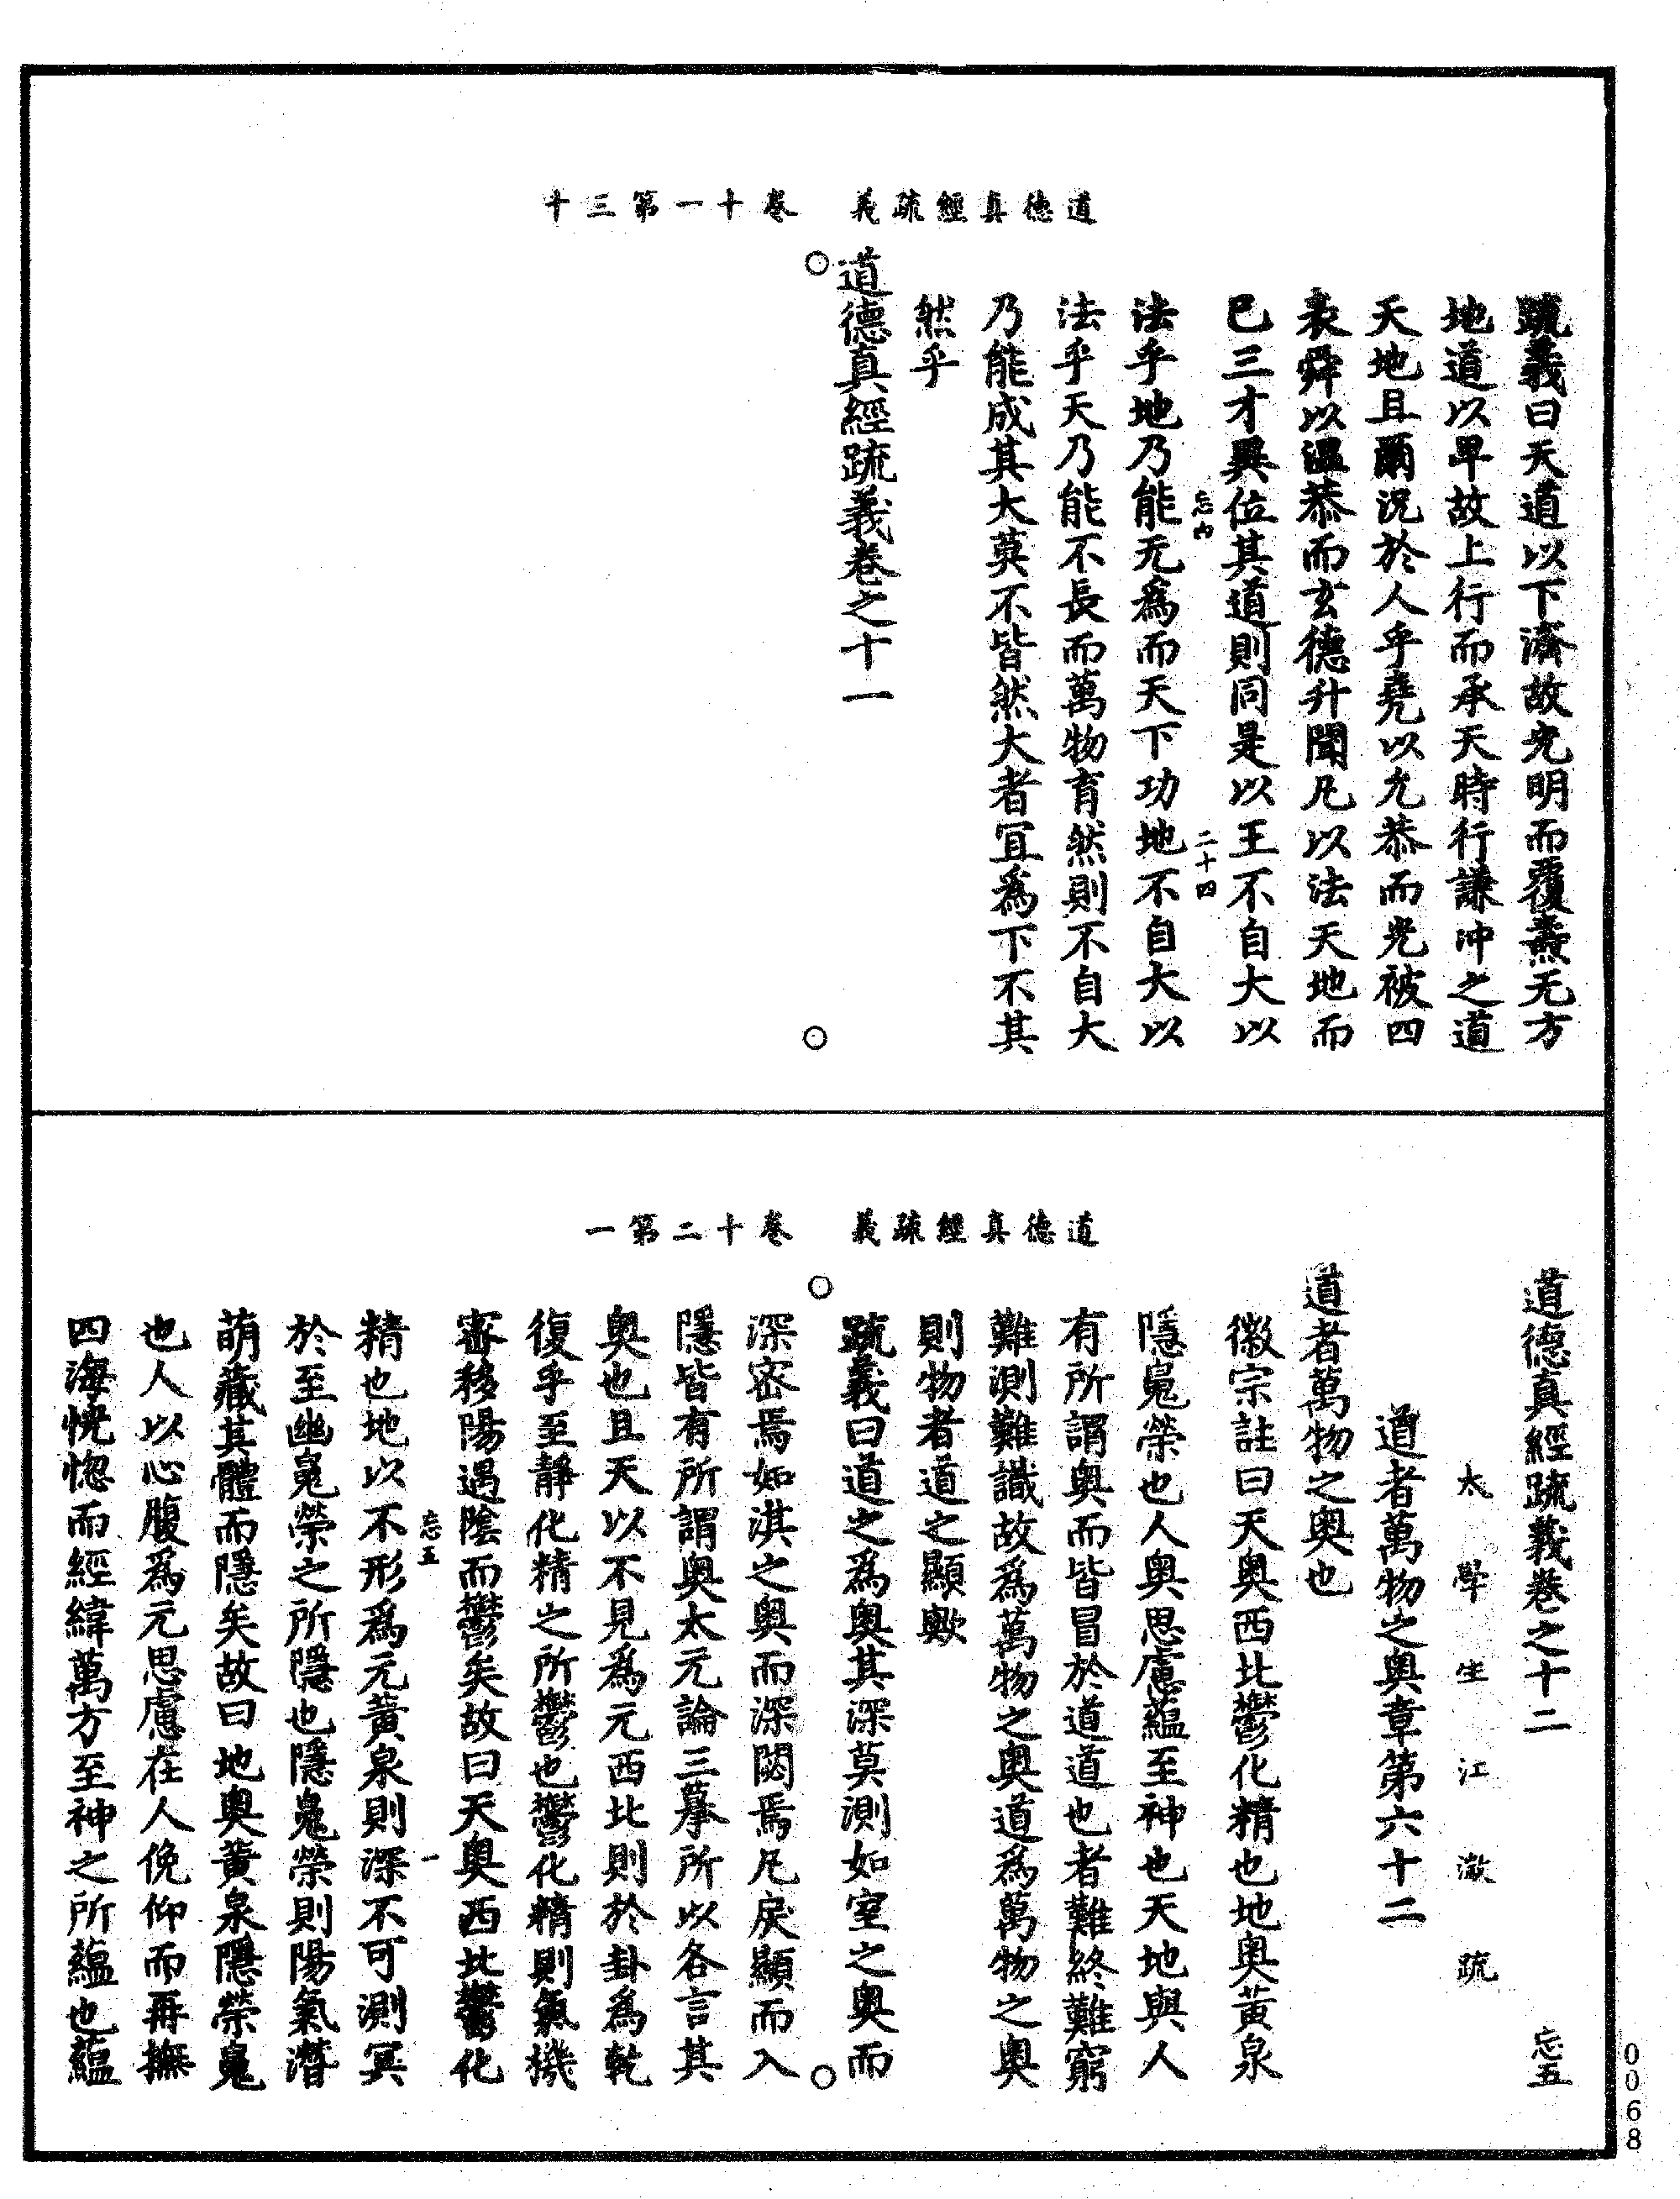 道德真經疏義　卷十一第三十
疏義曰天道以下濟故光明而覆燾无方
地道以卑故上行而承天時行謙冲之道
天地且爾況於人乎堯以允恭而光被四
表舜以溫恭而玄德升聞凡以法天地而
已三才異位其道則同是以王不自大以
忘内　二十四
法乎地乃能无為而天下功地不自大以
法乎天乃能不長而萬物育然則不自大
乃能成其大莫不皆然大者宜為下不其
然乎
道德真經疏義卷之十一
道德真經疏義　卷十二第一
道德真經疏義卷之十二　忘五
太學生江澂疏
道者萬物之奧章第六十二
道者萬物之奧也
徽宗註曰天奧西北鬱化精也地奧黃泉
隱嵬榮也人奧思慮蘊至神也天地與人
有所謂奧而皆冒於道道也者難終難窮
難測難識故為萬物之奧道為萬物之奧
則物者道之顯歟
疏義曰道之為奧其深莫測如室之奧而
深密焉如淇之奧而深閟焉凡戾顯而入
隱皆有所謂奧太元論三摹所以各言其
奧也且天以不見為元西北則於卦為乾
復乎至靜化精之所鬱也鬱化精則氣機
審移陽遇陰而鬱矣故曰天奧西北鬱化
忘五　一
精也地以不形為元黃泉則深不可測冥
於至幽嵬榮之所隱也隱嵬榮則陽氣潛
萌藏其體而隱矣故曰地奧黃泉隱榮嵬
也人以心腹為元思慮在人俛仰而再撫
四海怳惚而經緯萬方至神之所蘊也蘊
0068